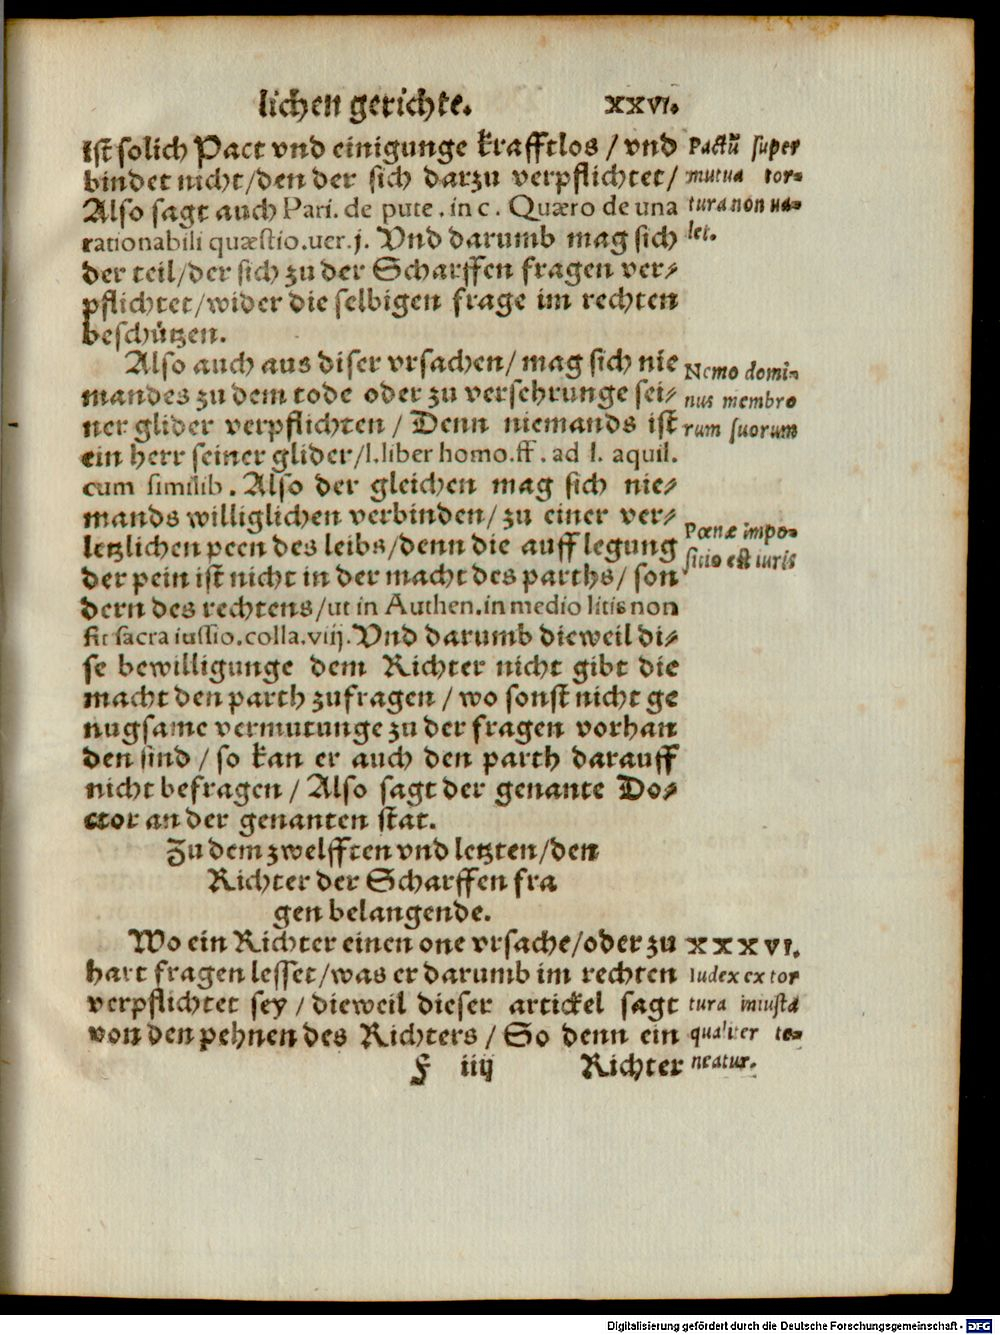 lichen gerichte. XXVI.
ist solich Pact vnd einigunge krafftlos / vnd
bindet nicht/den der sich darzu verpflichtet/
Also sagt auch Pari. de pute. in c. Quæro de una
rationabili quæstio.uer.j. Vnd darumb mag sich
der teil/der sich zu der Scharffen fragen ver⸗
pflichtet/wider die selbigen frage im rechten
beschützen.
Pactū super
mutua tor-
tura non ua-
let.
Also auch aus diser vrsachen/ mag sich nie
mandes zu dem tode oder zu versehrunge sei⸗
ner glider verpflichten / Denn niemands ist
ein herr seiner glider/l.liber homo.ff. ad l. aquil.
cum similib. Also der gleichen mag sich nie⸗
mands williglichen verbinden/ zu einer ver⸗
letzlichen peen des leibs/denn die auff legung
der pein ist nicht in der macht des parths/ son
dern des rechtens/ut in Authen.in medio litis non
fit sacra iussio.colla.viij.Vnd darumb dieweil di⸗
se bewilligunge dem Richter nicht gibt die
macht den parth zufragen / wo sonst nicht ge
nugsame vermutunge zu der fragen vorhan
den sind / so kan er auch den parth darauff
nicht befragen / Also sagt der genante Do⸗
ctor an der genanten stat.
Nemo domi-
nus membro
rum suorum
Pœnæ impo-
sitio est iuris
Zu dem zwelfften vnd letzten/den
Richter der Scharffen fra
gen belangende.
Wo ein Richter einen one vrsache/oder zu
hart fragen lesset/was er darumb im rechten
verpflichtet sey / dieweil dieser artickel sagt
von den pehnen des Richters / So denn ein
XXXVI.
Iudex ex tor
tura iniusta
qualiter te-
neatur.
F iiij Richter
Digitalisierung gefördert durch die Deutsche Forschungsgemeinschaft - DFG